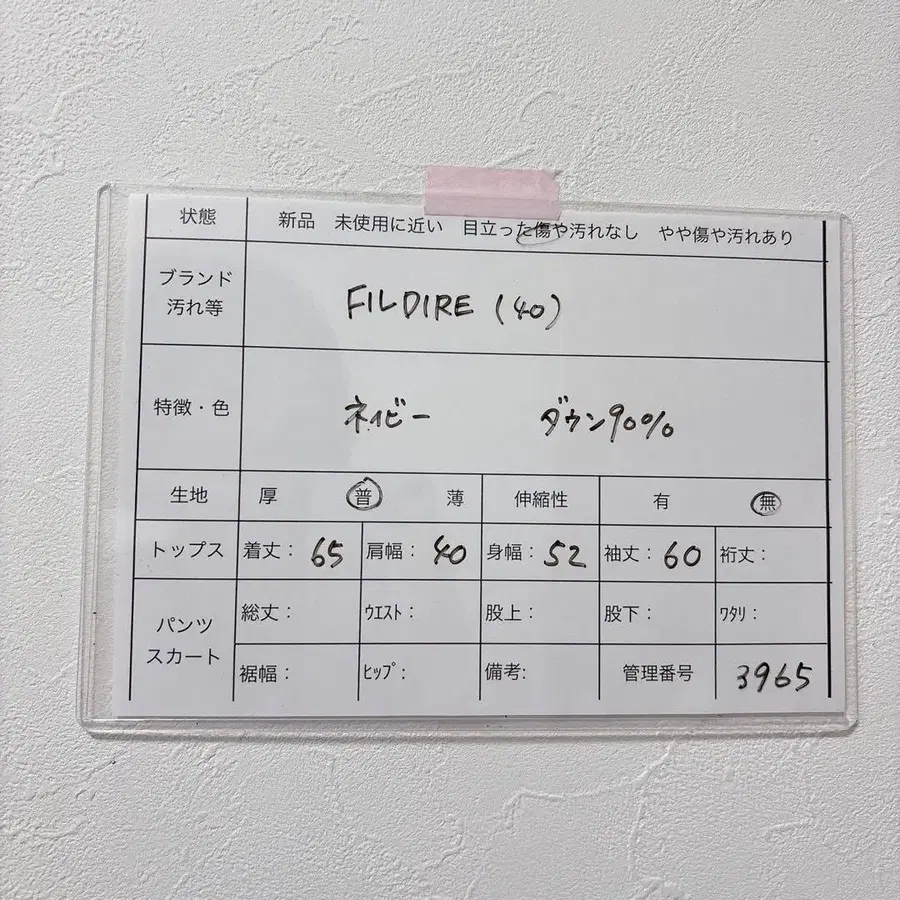 状態 新品 未使用に近い 目立った傷や汚れなし やや傷や汚れあり
ブランド
汚れ等
FILDIRE (40)
特徴・色 ネイビー ダウン90%
生地 厚 普 薄 伸縮性 有 無
トップス 着丈: 65 肩幅: 40 身幅: 52 袖丈: 60 裄丈:
パンツ
スカート
総丈: ウエスト: 股上: 股下: ワタリ:
裾幅: ヒップ: 備考: 管理番号 3965